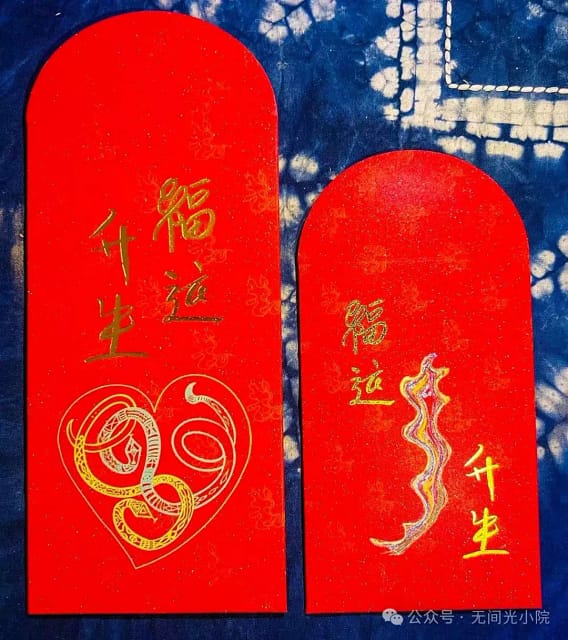 福
升生
福
升生
公众号 · 无间光小院